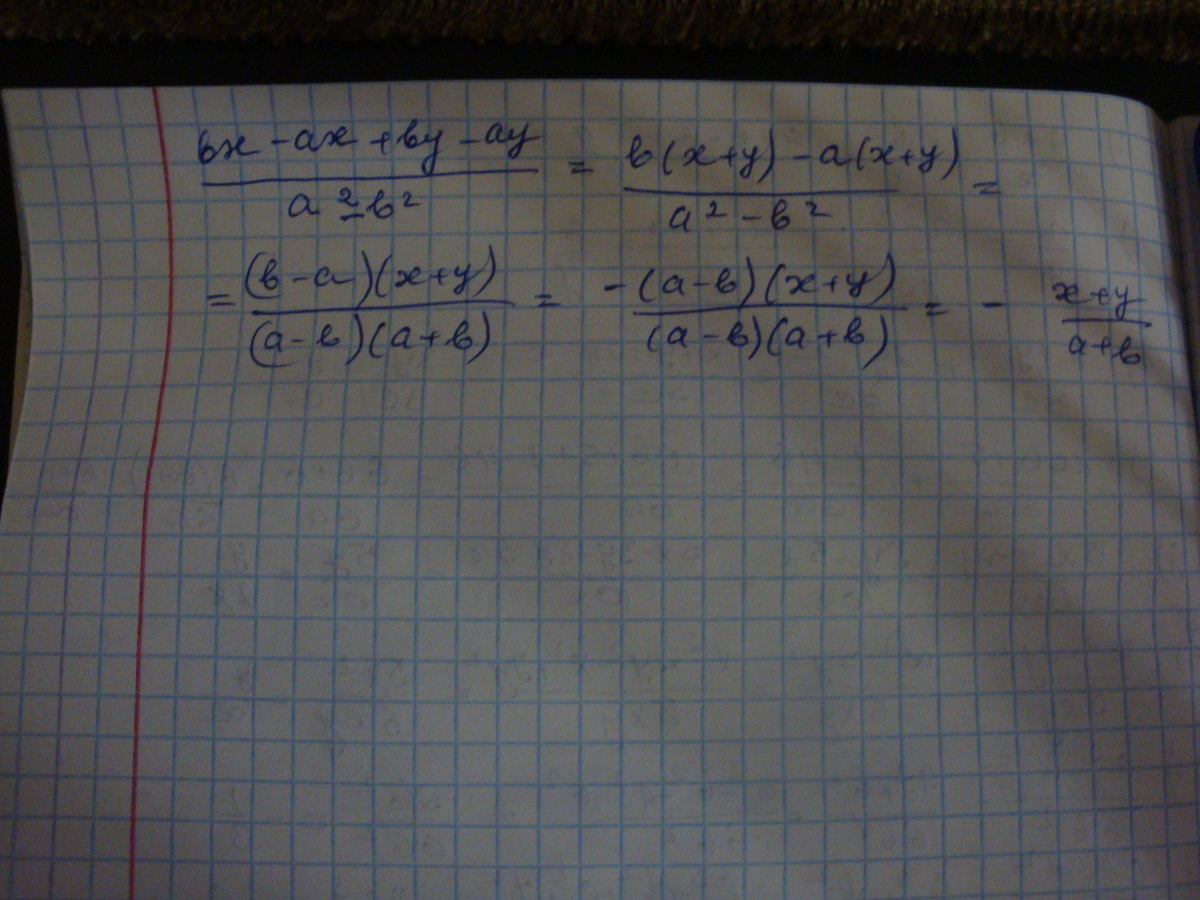 (bx - ax + by - ay)/(a² - b²) = (b(x+y) - a(x+y))/(a² - b²) =
= ((b - a)(x+y))/((a - b)(a + b)) = (-(a - b)(x+y))/((a - b)(a + b)) = - (x+y)/(a+b)